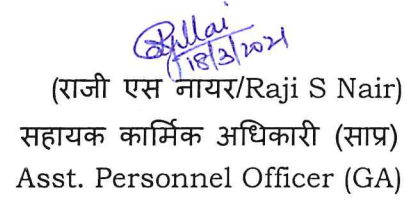 18/3/2021
(राजी एस नायर/Raji S Nair)
सहायक कार्मिक अधिकारी (साप्र)
Asst. Personnel Officer (GA)